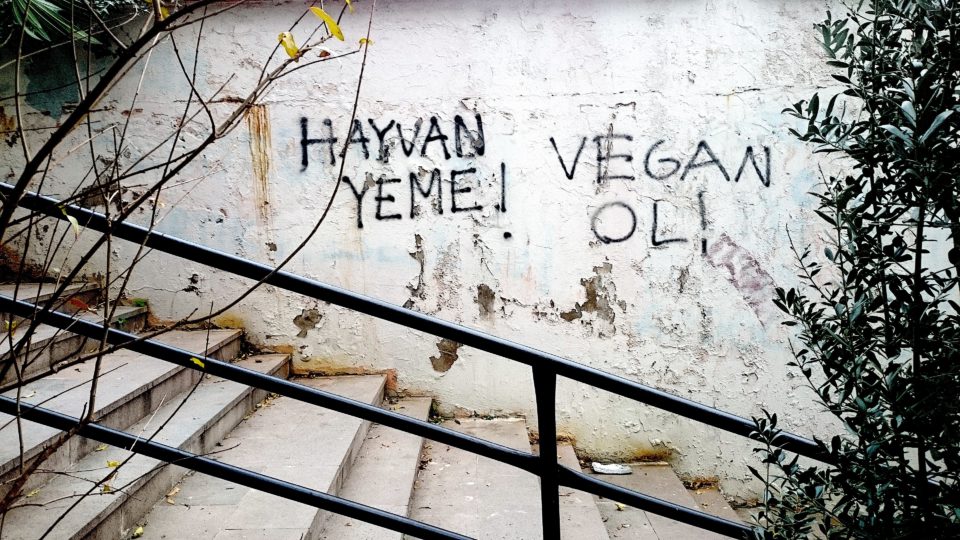 HAYVAN
YEME!
VEGAN
OL!